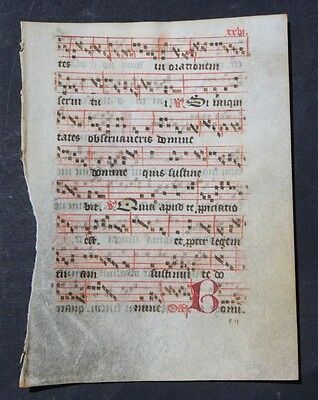 xxvi.
tes in orationem
serui tu i. V. Si iniqui
tates obseruaueris domine
domine quis sustine
bit. V. Quia apud te ꝓpiciatio
est. et ꝓpter legem
tuam sustinui te do
mine. Off. Bonū
c ij